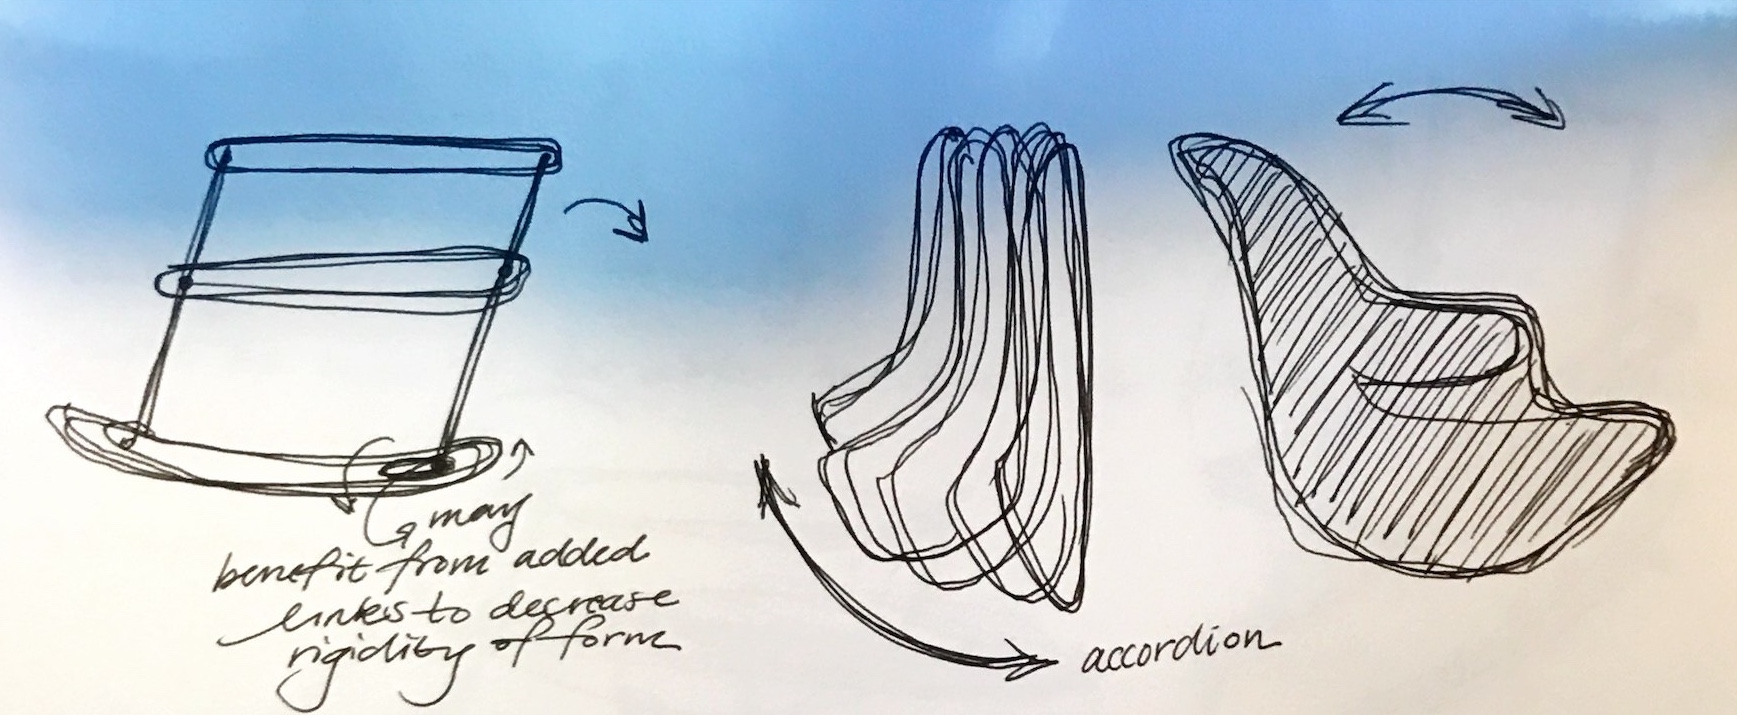 may
benefit from added
links to decrease
rigidity of form
accordion